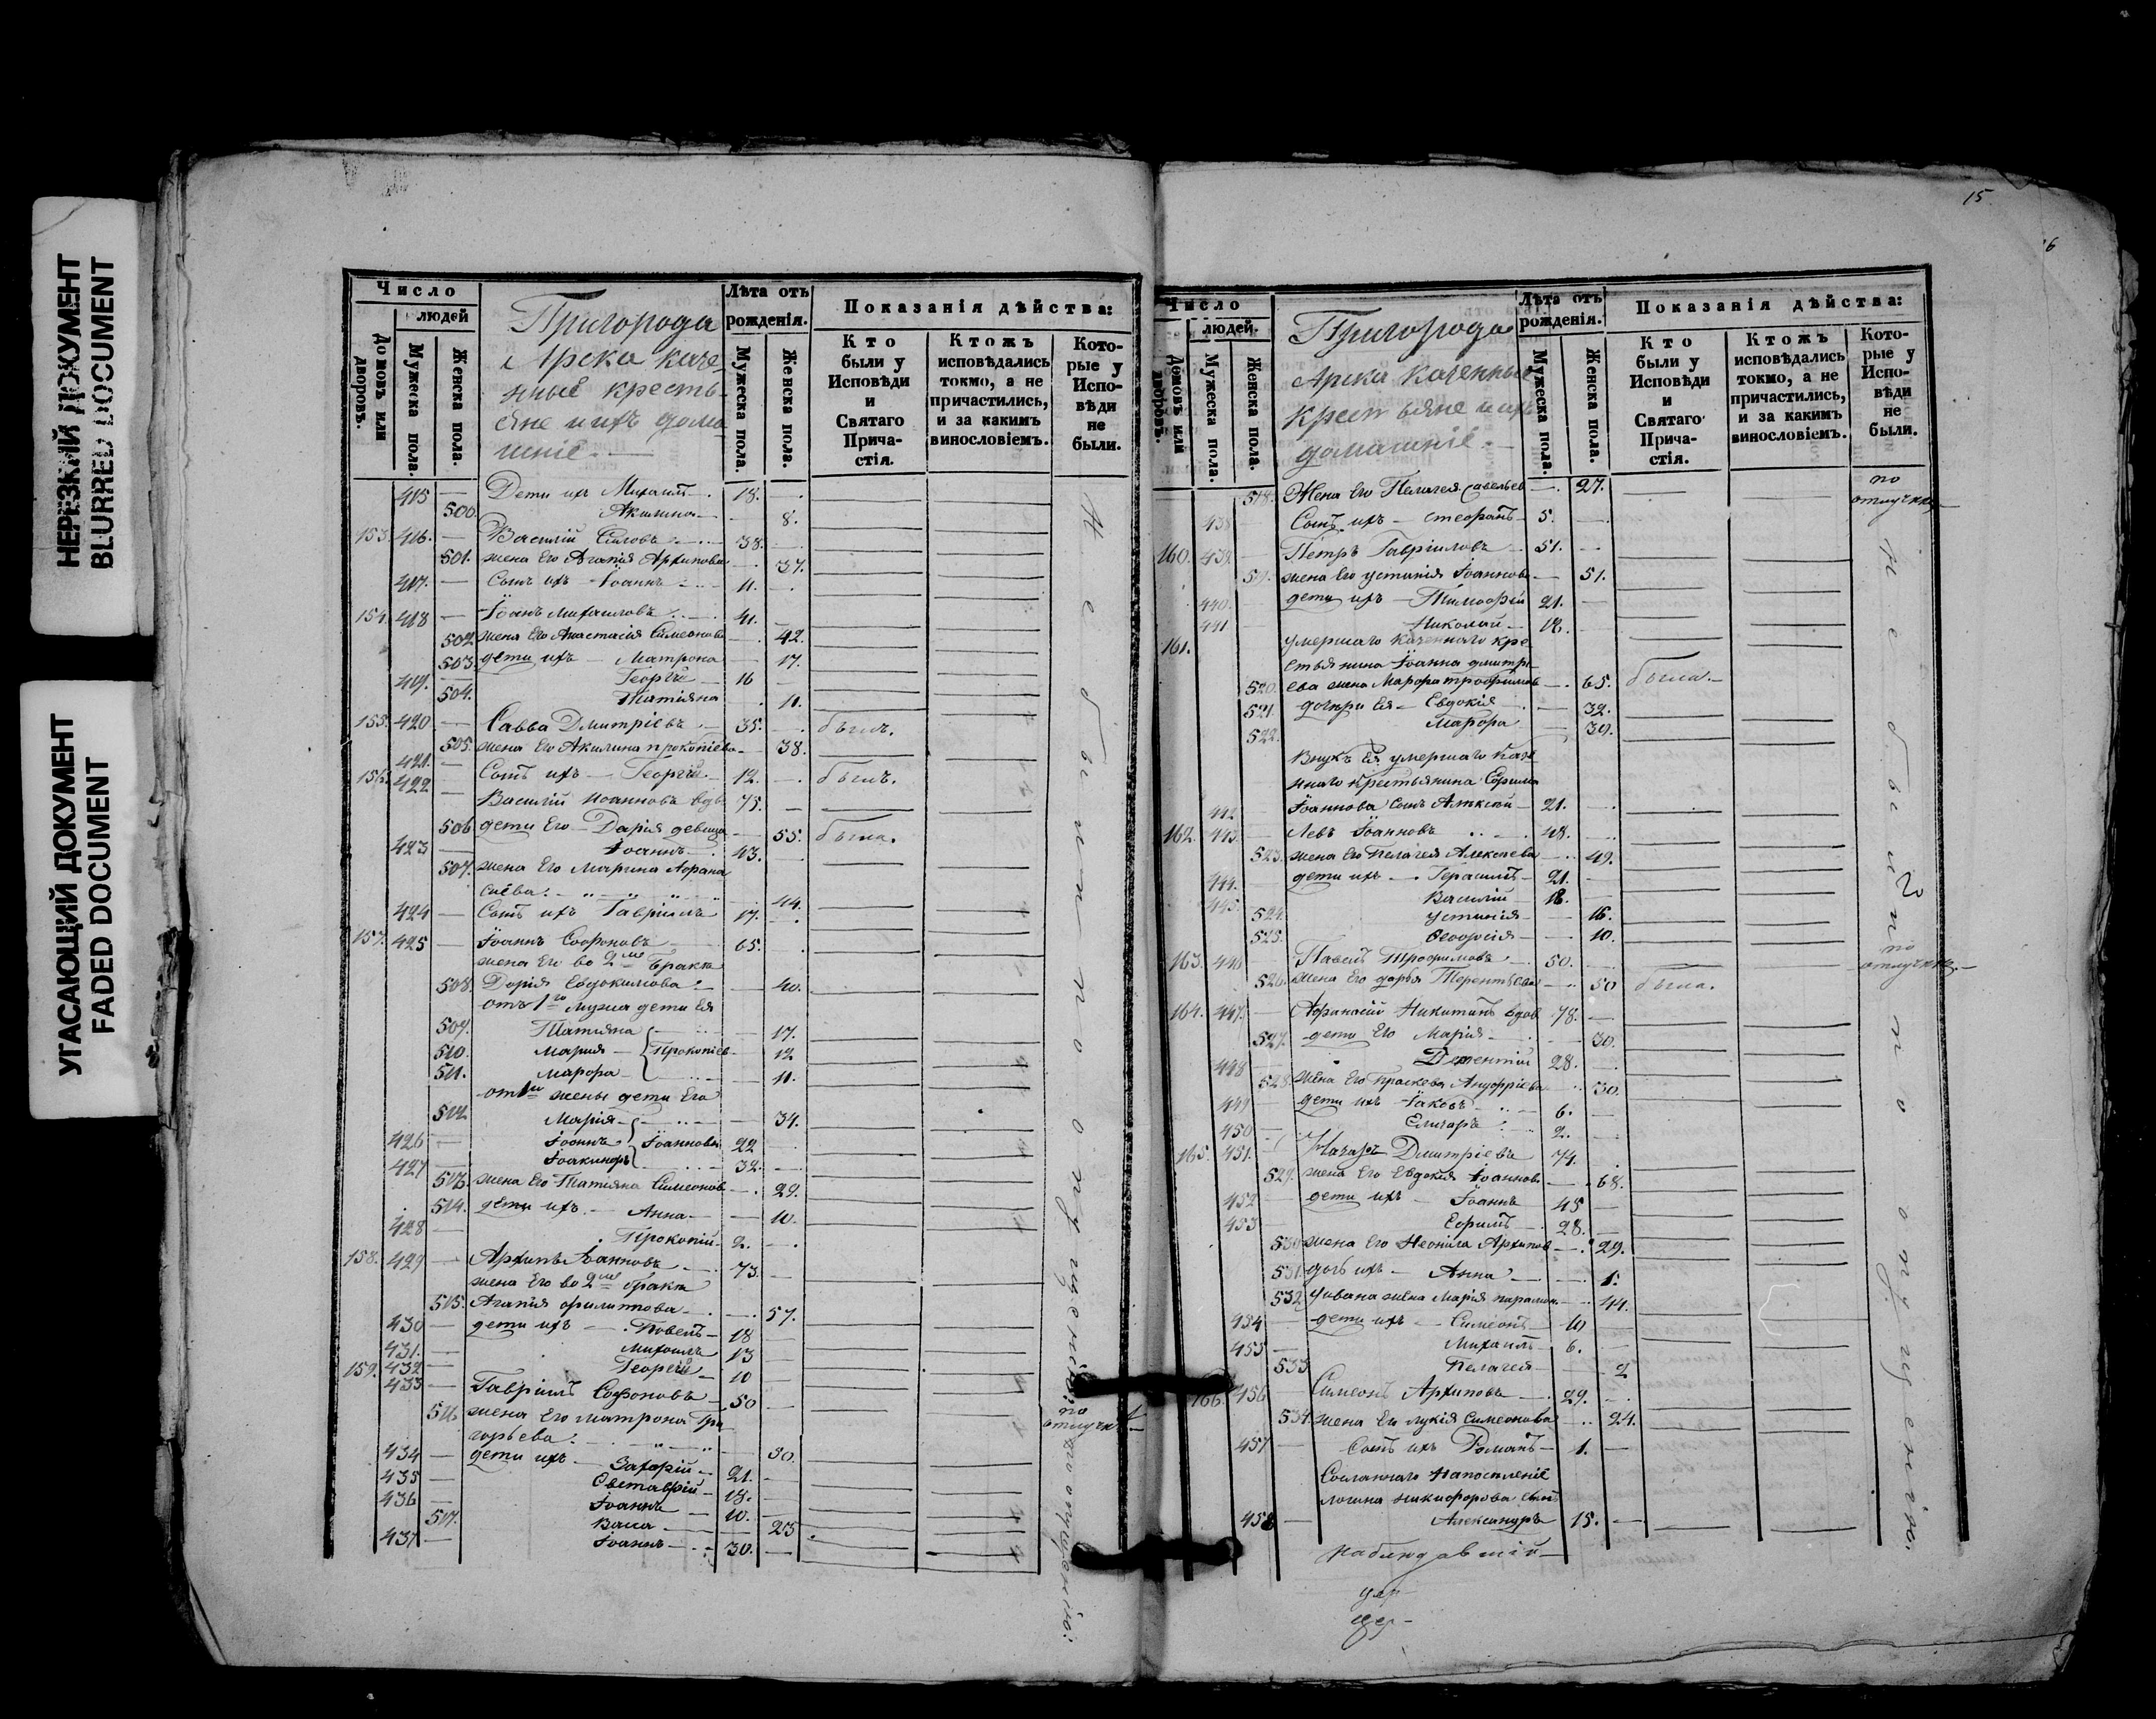 НЕРЕЗКИЙ ДОКУМЕНТ
BLURRED DOCUMENT
УГАСАЮЩИЙ ДОКУМЕНТ
FADED DOCUMENT
Число
людей
Домовъ или дворовъ.
Мужеска пола.
Женска пола.
Пригорода
Арска казе-
нные кресть-
яне и ихъ дома-
шніе. —
Лѣта отъ
рожденія.
Мужеска пола.
Женска пола.
Показанія дѣйства:
Кто
были у
Исповѣди
и
Святаго
Прича-
стія.
Ктожъ
исповѣдались
токмо, а не
причастились,
и за какимъ
винословіемъ.
Кото-
рые у
Испо-
вѣди
не
были.
415 — Дети ихъ Михаилъ — 18.
500. Акилина — 8.
153. 416. — Василій Силовъ 38.
501. жена Его Агапія Архипова — 37.
417. — Сынъ ихъ Іоаннъ 11.
154. 418 — Іоанъ Михаиловъ 41.
502. жена Его Анастасія Симеонова — 42.
503. дети ихъ — Матрона — 17.
419. — Георгій — 16
504. Татіяна 11.
155. 420 — Савва Дмитріевъ — 35. былъ.
505. жена Его Акилина Прокопіева — 38.
421. — Сынъ ихъ — Георгій — 12. былъ.
156. 422 — Василій Иоанновъ вдв. 75. —
506 дети Его — Дарія девица — 55. была.
423 — Іоаннъ — 43.
507. жена Его Марина Афана
сіева 44.
424 — Сынъ ихъ Гавріилъ 17.
157. 425 — Іоаннъ Софроновъ 65.
жена Его во 2мъ Бракѣ
508. Дарія Евдокимова — 40.
отъ 1го Мужа дети Ея
509. Татіяна — 17.
510. Мария — Прокопіев. 12
511. Марфа — 11.
от 1й жены дети Его
512 Марія — 34.
426 — Іоаннъ Іоанновы 22
427 Іоакимъ 32.
513. жена Его Татіяна Симеонов. 29.
514. дети ихъ — Анна — 10.
428 — Прокопій — 2.
158. 429 — Архипъ Іоанновъ 73. —
жена Его во 2мъ бракѣ
515. Агапія Филиппова — 57.
430 — дети ихъ — Павелъ — 18
431. — Михаилъ 13
432 — Георгій — 10
159. 433 — Гавріилъ Софроновъ 50
516 жена Его Матрона Гри
горьева 50.
434 — дети ихъ — Захарій 21.
435 — 18.
436 — Іоаннъ — 10.
517. Васса — 25
437 — Іоаннъ — 30. —
Не были по опущенію.
по
отлучкѣ
по опущенію.
15
16
Число
людей.
Домовъ или дворовъ.
Мужеска пола.
Женска пола.
Пригорода
Арска Казенные
Крестьяне и ихъ
домашніе. —
Лѣта отъ
рожденія.
Мужеска пола.
Женска пола.
Показанія дѣйства:
Кто
были у
Исповѣди
и
Святаго
Прича-
стія.
Ктожъ
исповѣдались
токмо, а не
причастились,
и за какимъ
винословіемъ.
Кото-
рые у
Испо-
вѣди
не
были.
518. Жена Его Пелагея Савельев. — 27. по
отлучкѣ
438 Сынъ ихъ — Стефанъ — 5.
160. 439. Петръ Гавріиловъ 51.
519. жена Его Устинія Іоаннова — 51.
440. дети ихъ — Тимофей 21.
441 Николай — 18.
161. умершаго Казеннаго кре
стьянина Іоанна Дмитрі
520. ева жена Марфа Трофимова — 65. была. —
521. дочери Ея — Евдокія — 32.
522. Марфа — 30.
Внукъ Ея умершаго Казе
ннаго крестьянина Ефима
442 Іоаннова сынъ Алексій — 21.
162. 443. — Левъ Іоанновъ 48.
523. жена Его Пелагея Алексеева — 49.
444. — дети ихъ — Герасимъ — 21.
445. Василій — 18.
524. Устинія — 16.
525. Феодосія — 10.
163. 446 Павелъ Трофимовъ 50. по
отлучкѣ. —
526. жена Его Дарья Терентьева 50 была.
164. 447. — Афанасій Никитинъ вдов. 78. —
527. дети Его Марія — 30.
448 — 28.
528. жена Его Праскева Ануфріева 30.
449 дети ихъ Іаковъ 6. —
450 — Елизаръ 2.
165. 451. Назаръ Дмитріевъ 74.
529. жена Его Евдокія Іоаннова — 68.
452 — дети ихъ — Іоаннъ 45 —
453 — Ефимъ 28. —
530 жена Его Неонила Архипов. — 29.
531. дочь ихъ — Анна — 1.
532. Ивана жена Марія Парамон. 44.
454 — дети ихъ — Симеонъ 10
455 — Михаилъ 6. —
533 Пелагея — 2
166. 456 — Симеонъ Архиповъ 29.
534. жена Его Лукія Симеонова 24.
457 — Сынъ ихъ Романъ — 1. —
Сосланнаго на поселеніе
Логина Никифорова сынъ
458 — Александръ 15. —
Не были по опущенію.